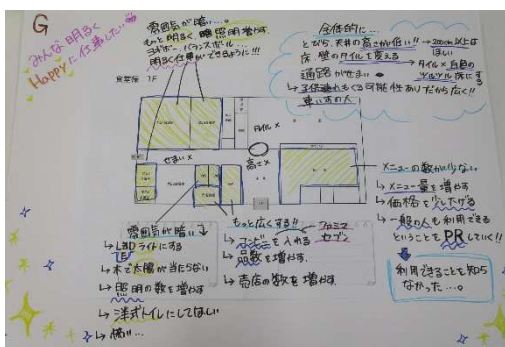 G
みんな明るく
Happyに仕事したい
雰囲気が暗い…。
もっと明るく、照明増やす
ヨギボー、バランスボール…
明るく仕事ができるように!!!
食堂街 1F
全体的に…
とびら、天井の高さが低い!! → 200cm以上は
ほしい
床・壁のタイルを変える
→ タイル× 白色の
ツルツル床にする
通路がせまい
↳ 子供連れもくる可能性ありだから広く!!
車いすの人
タイル×
せまい×
高さ×
メニューの数が少ない
↳ メニュー量を増やす
↳ 価格を少し下げる
↳ 一般の人も利用できる
ということをPRしていく!!
利用できることを知ら
なかった…。
雰囲気が暗い
↳ LEDライトにする
↳ 木で太陽が当たらない
↳ 照明の数を増やす
↳ 洋式トイレにしてほしい
↳ 怖い…
もっと広くする!!
ファミマ
セブン
↳ コンビニを入れる
↳ 品数を増やす
↳ 売店の数を増やす